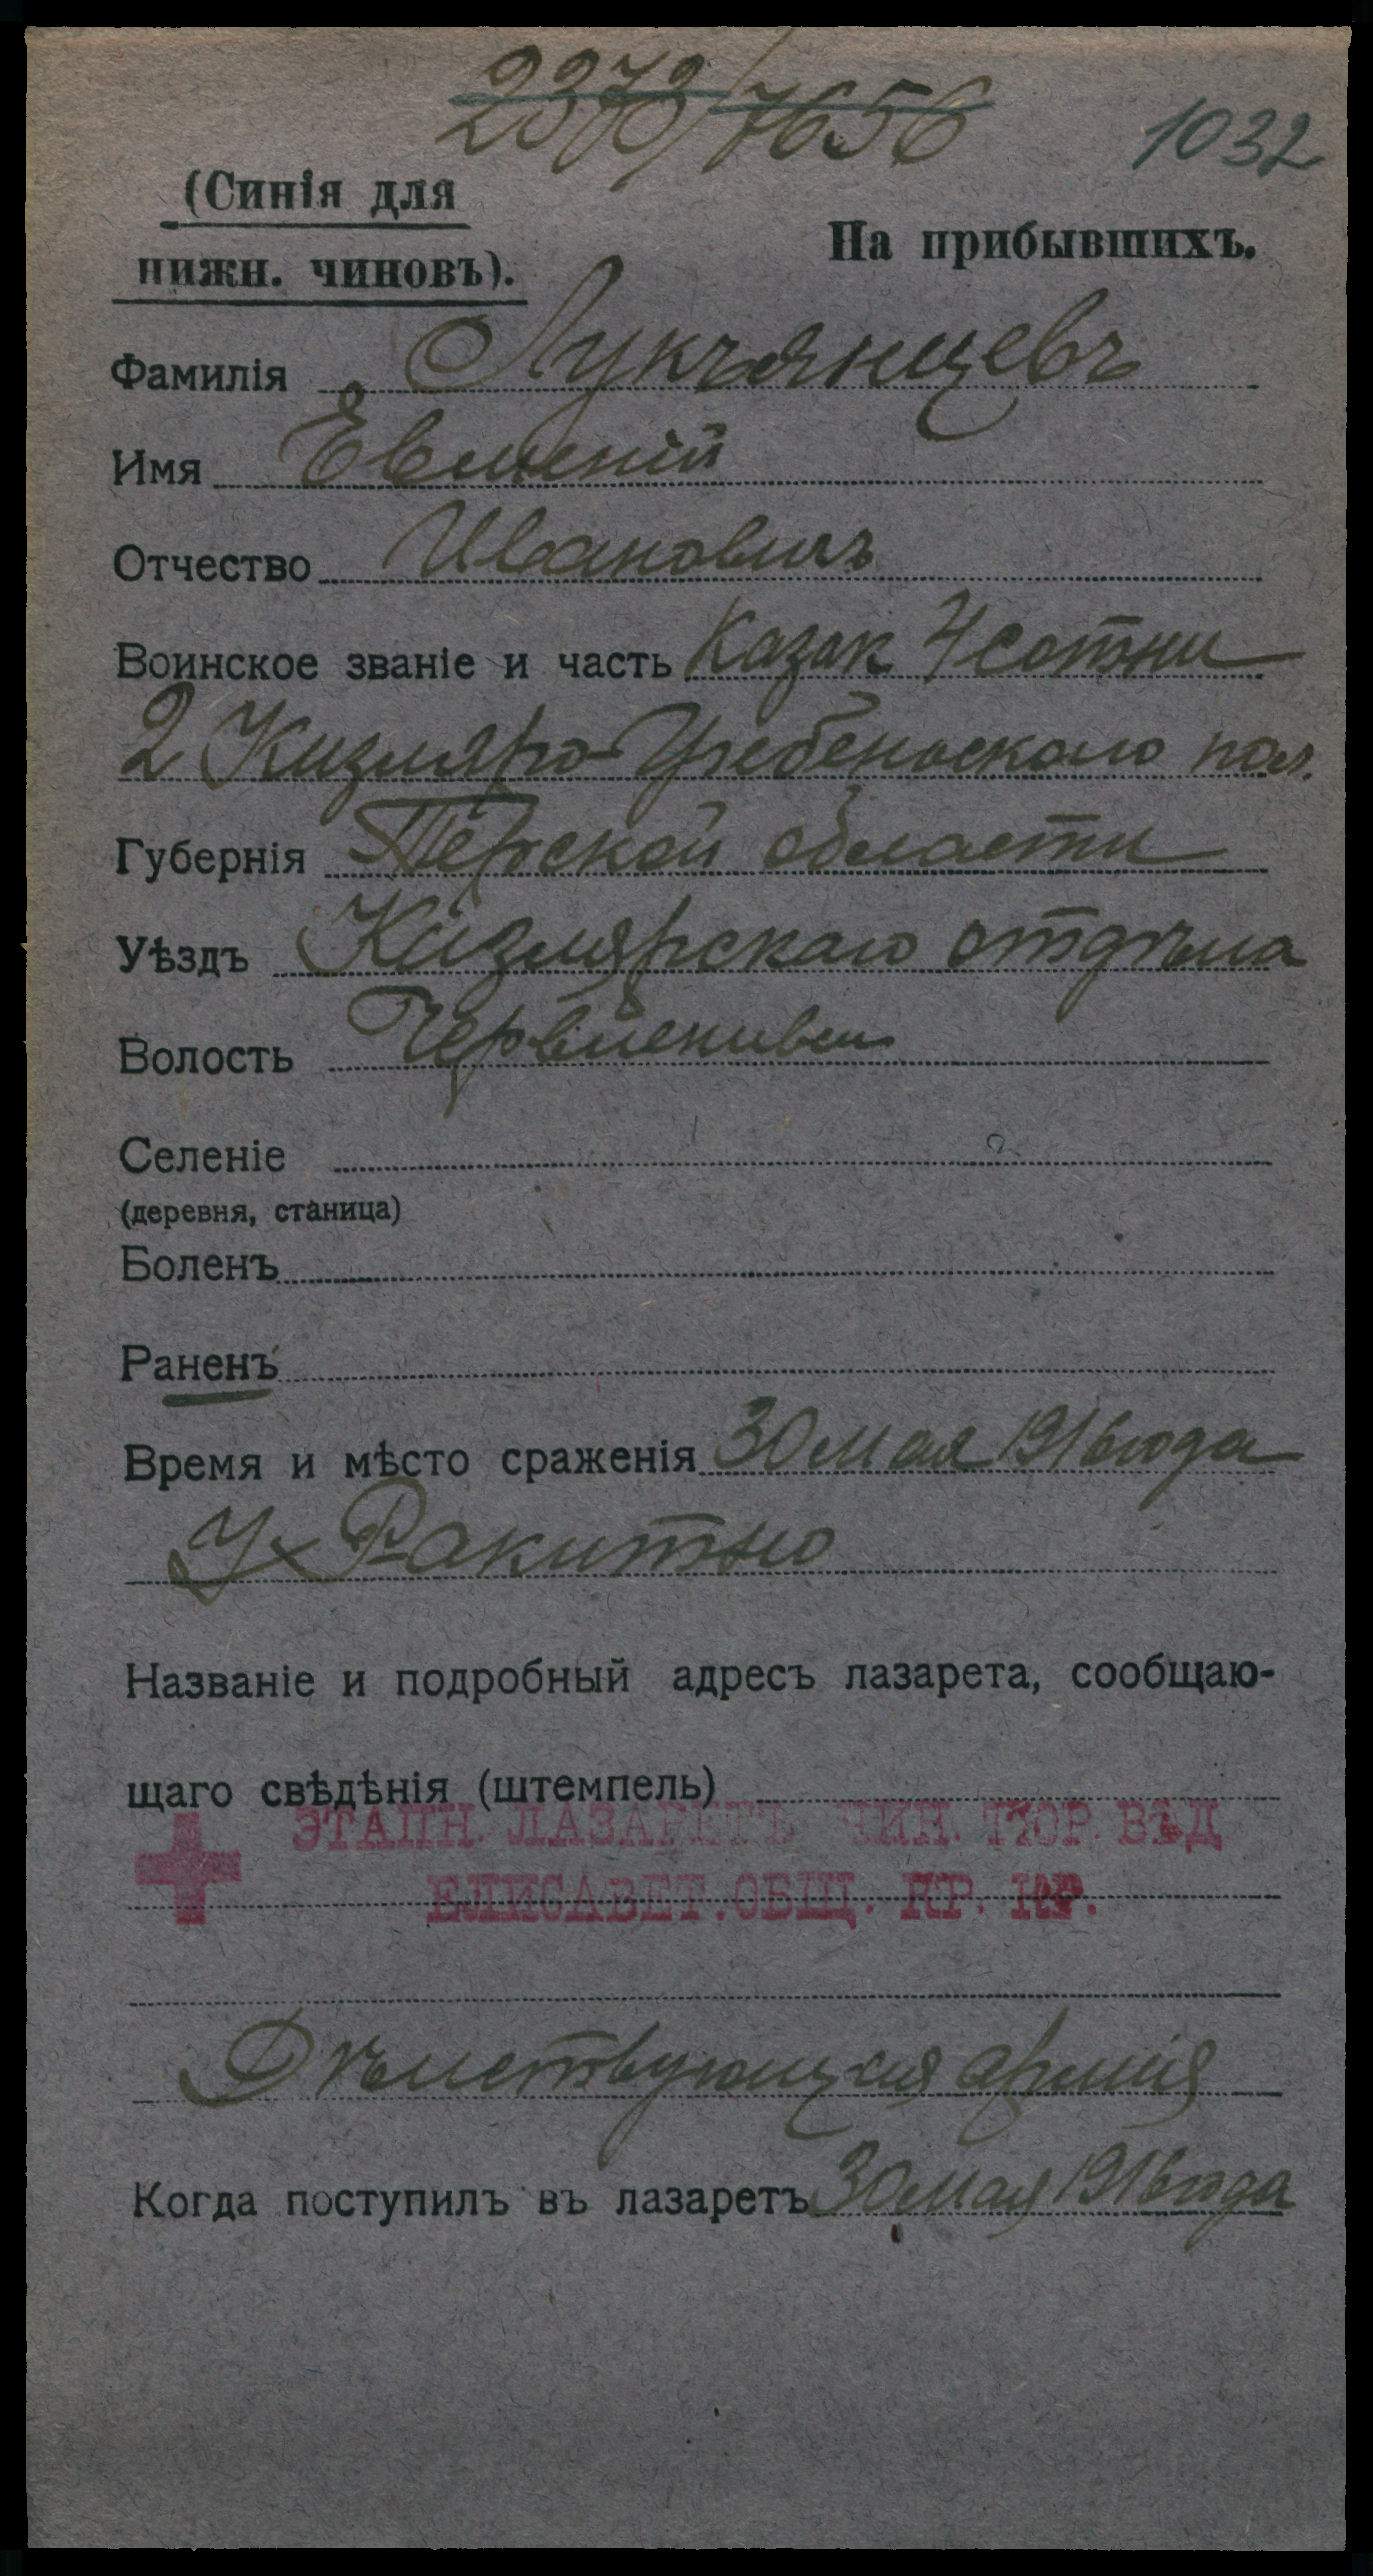 2373/7656
1032
(Синія для
нижн. чиновъ).
На прибывшихъ.
Фамилія Лукъянцевъ
Имя Евменій
Отчество Ивановичъ
Воинское званіе и часть Казак 4 сотни
2 Кизляро-Гребенскаго пол.
Губернія Терской области
Уѣздъ Кизлярскаго отдѣла
Волость
Селеніе
(деревня, станица)
Боленъ
Раненъ
Время и мѣсто сраженія 30 мая 1916 года
У х Ракитно
Названіе и подробный адресъ лазарета, сообщаю-
щаго свѣдѣнія (штемпель)
ЭТАПН. ЛАЗАРЕТЪ ЧИН. ТЮР. ВѢД
ЕЛИСАВЕТ. ОБЩ. КР. КР.
Дѣйствующая армія
Когда поступилъ въ лазаретъ 30 мая 1916 года